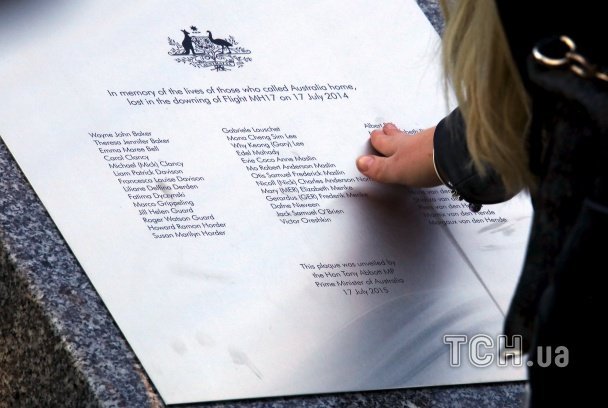 In memory of the lives of those who called Australia home,
lost in the downing of Flight MH17 on 17 July 2014
Wayne John Baker
Theresa Jennifer Baker
Emma Maree Bell
Carol Clancy
Michael (Mick) Clancy
Liam Patrick Davison
Francesca Louise Davison
Liliane Derden
Fatima Dyczynski
Marco Grippeling
Jill Helen Guard
Roger Watson Guard
Howard Ramon Horder
Susan Marilyn Horder
Gabriele Lauschet
Mona Cheng Sim Lee
Why Keong (Gary) Lee
Edel Mahady
Evie Coco Anne Maslin
Mo Robert Anderson Maslin
Otis Samuel Frederick Maslin
Nicoll (Nick) Charles Anderson
Mary (MER) Elizabeth Menke
Gerardus (GER) Frederik
Dafne Nieveen
Jack Samuel O'Brien
Victor Oreshkin
Albert
van den Hende
van den Hende
van den Hende
This plaque was unveiled by
the Hon Tony Abbott MP
Prime Minister of Australia
17 July 2015
ТСН.ua